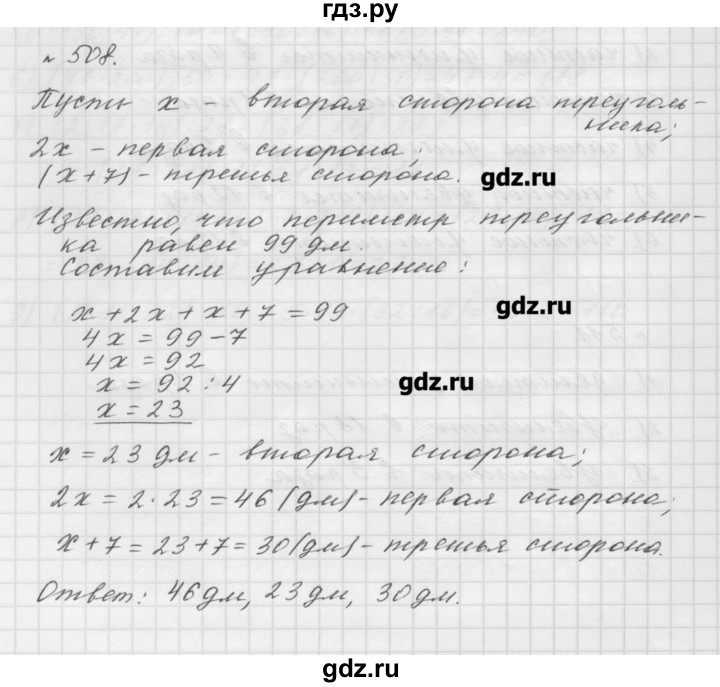 гдз.ру
№ 508.
Пусть x - вторая сторона треуголь-
ника;
2x - первая сторона;
(x+7) - третья сторона.
gdz.ru
Известно, что периметр треугольни-
ка равен 99 дм.
Составим уравнение:
x + 2x + x + 7 = 99
gdz.ru
4x = 99 - 7
4x = 92
x = 92 : 4
gdz.ru
x = 23
x = 23 дм - вторая сторона;
2x = 2·23 = 46 (дм) - первая сторона;
x + 7 = 23 + 7 = 30 (дм) - третья сторона.
Ответ: 46 дм, 23 дм, 30 дм.
gdz.ru